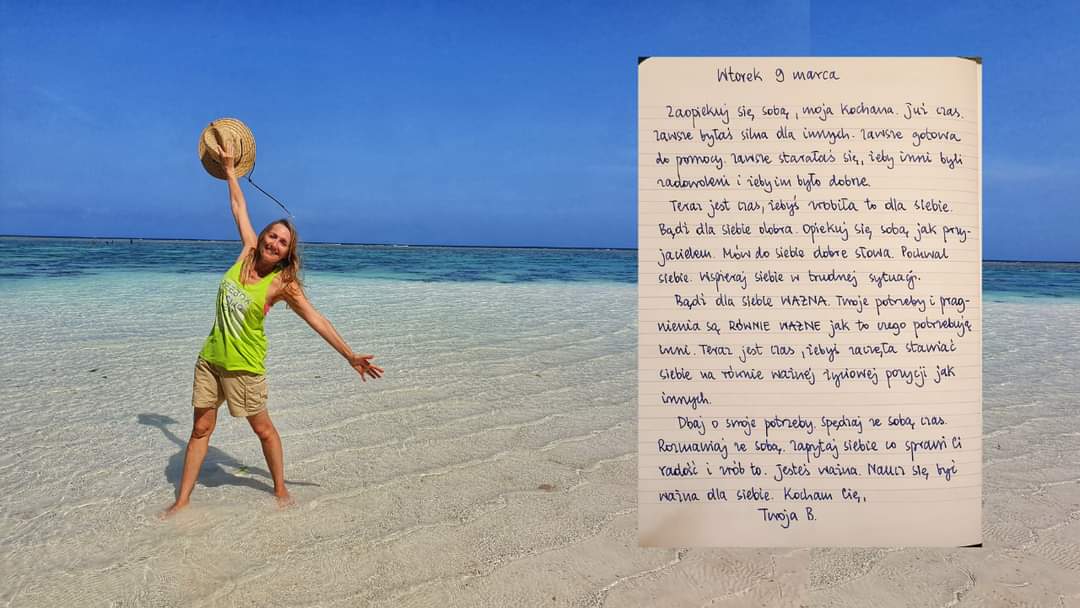 Wtorek 9 marca
Zaopiekuj się sobą, moja Kochana. Już czas.
Zawsze byłaś silna dla innych. Zawsze gotowa
do pomocy. Zawsze starałaś się, żeby inni byli
zadowoleni i żeby im było dobrze.
Teraz jest czas, żebyś zrobiła to dla siebie.
Bądź dla siebie dobra. Opiekuj się sobą jak przy-
jacielem. Mów do siebie dobre słowa. Pochwal
siebie. Wspieraj siebie w trudnej sytuacji.
Bądź dla siebie WAŻNA. Twoje potrzeby i prag-
nienia są RÓWNIE WAŻNE jak to czego potrzebują
inni. Teraz jest czas, żebyś zaczęła stawiać
siebie na równie ważnej życiowej pozycji jak
innych.
Dbaj o swoje potrzeby. Spędzaj ze sobą czas.
Rozmawiaj ze sobą. Zapytaj siebie co sprawi Ci
radość i zrób to. Jesteś ważna. Naucz się być
ważna dla siebie. Kocham Cię,
Twoja B.